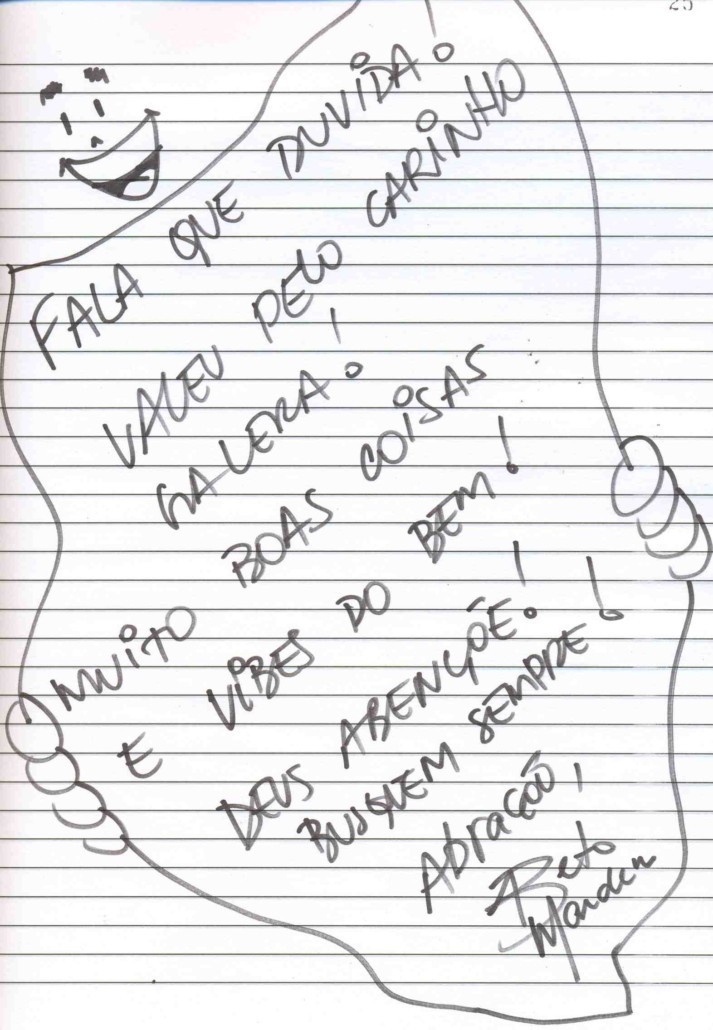 25
FALA QUE DUVIDA!
VALEU PELO CARINHO
GALERA!
MUITO BOAS COISAS
E VIBES DO BEM!
DEUS ABENÇÕE!
BUSQUEM SEMPRE!
Abração,
Beto
Marden